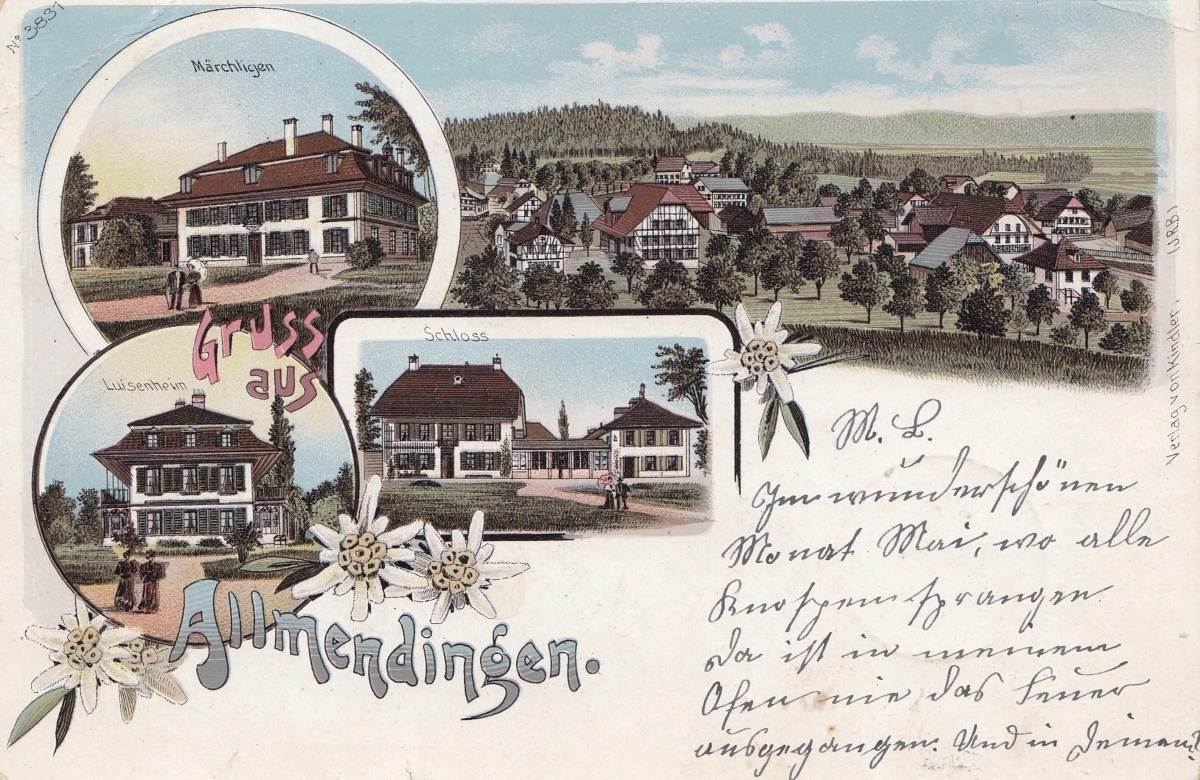 No 3831
Märchligen
Gruss
aus
Luisenheim
Schloss
Allmendingen.
Verlag von Kinder (URB)
M. L.
Im wunderschönen
Monat Mai, wo alle
Knospen sprangen
da ist in meinem
Ofen nie das Feuer
ausgegangen. Und in Deinem?